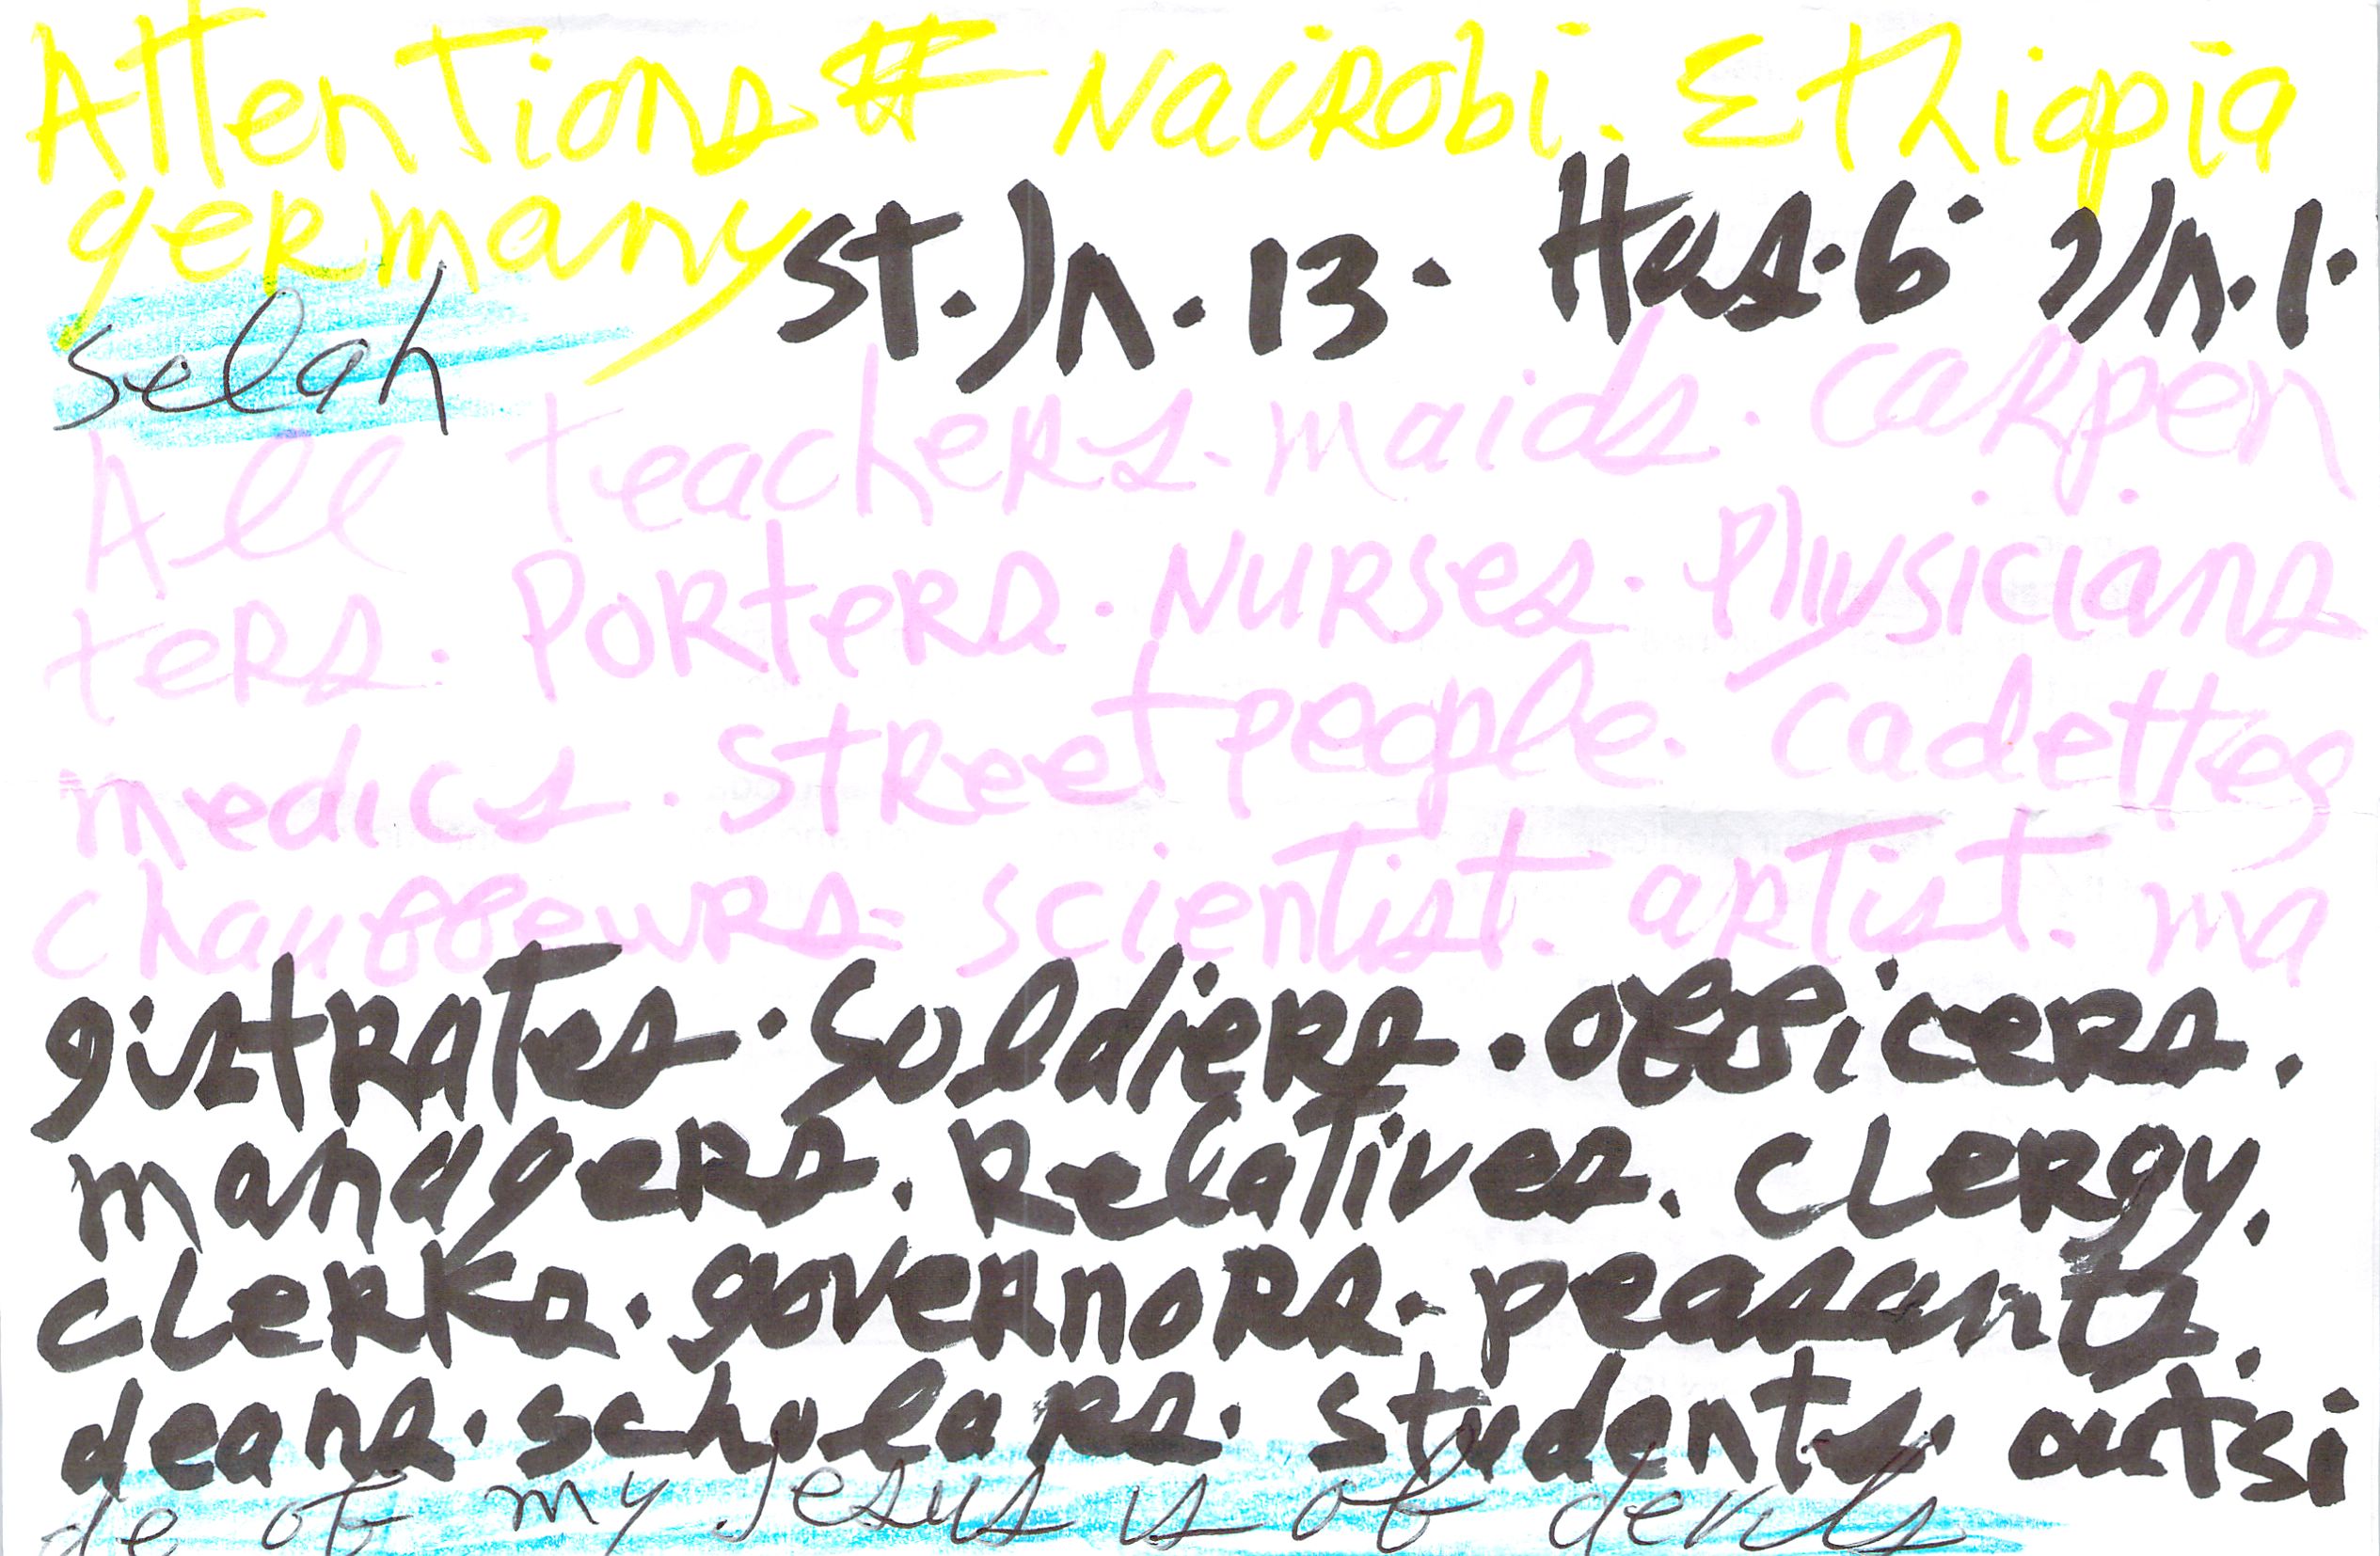 Attentions # Nairobi. Ethiopia
germany St. Jn. 13. Hos. 6. 2 Jn. 1.
Selah
All teachers. maids. carpen
ters. Porters. Nurses. Physicians
medics. street people. cadettes
chauffeurs. scientist. artist. ma
gistrates. Soldiers. officers.
managers. Relatives. clergy.
clerks. governors. peasants.
deans. scholars. students. outsi
de of my Jesus is of devils